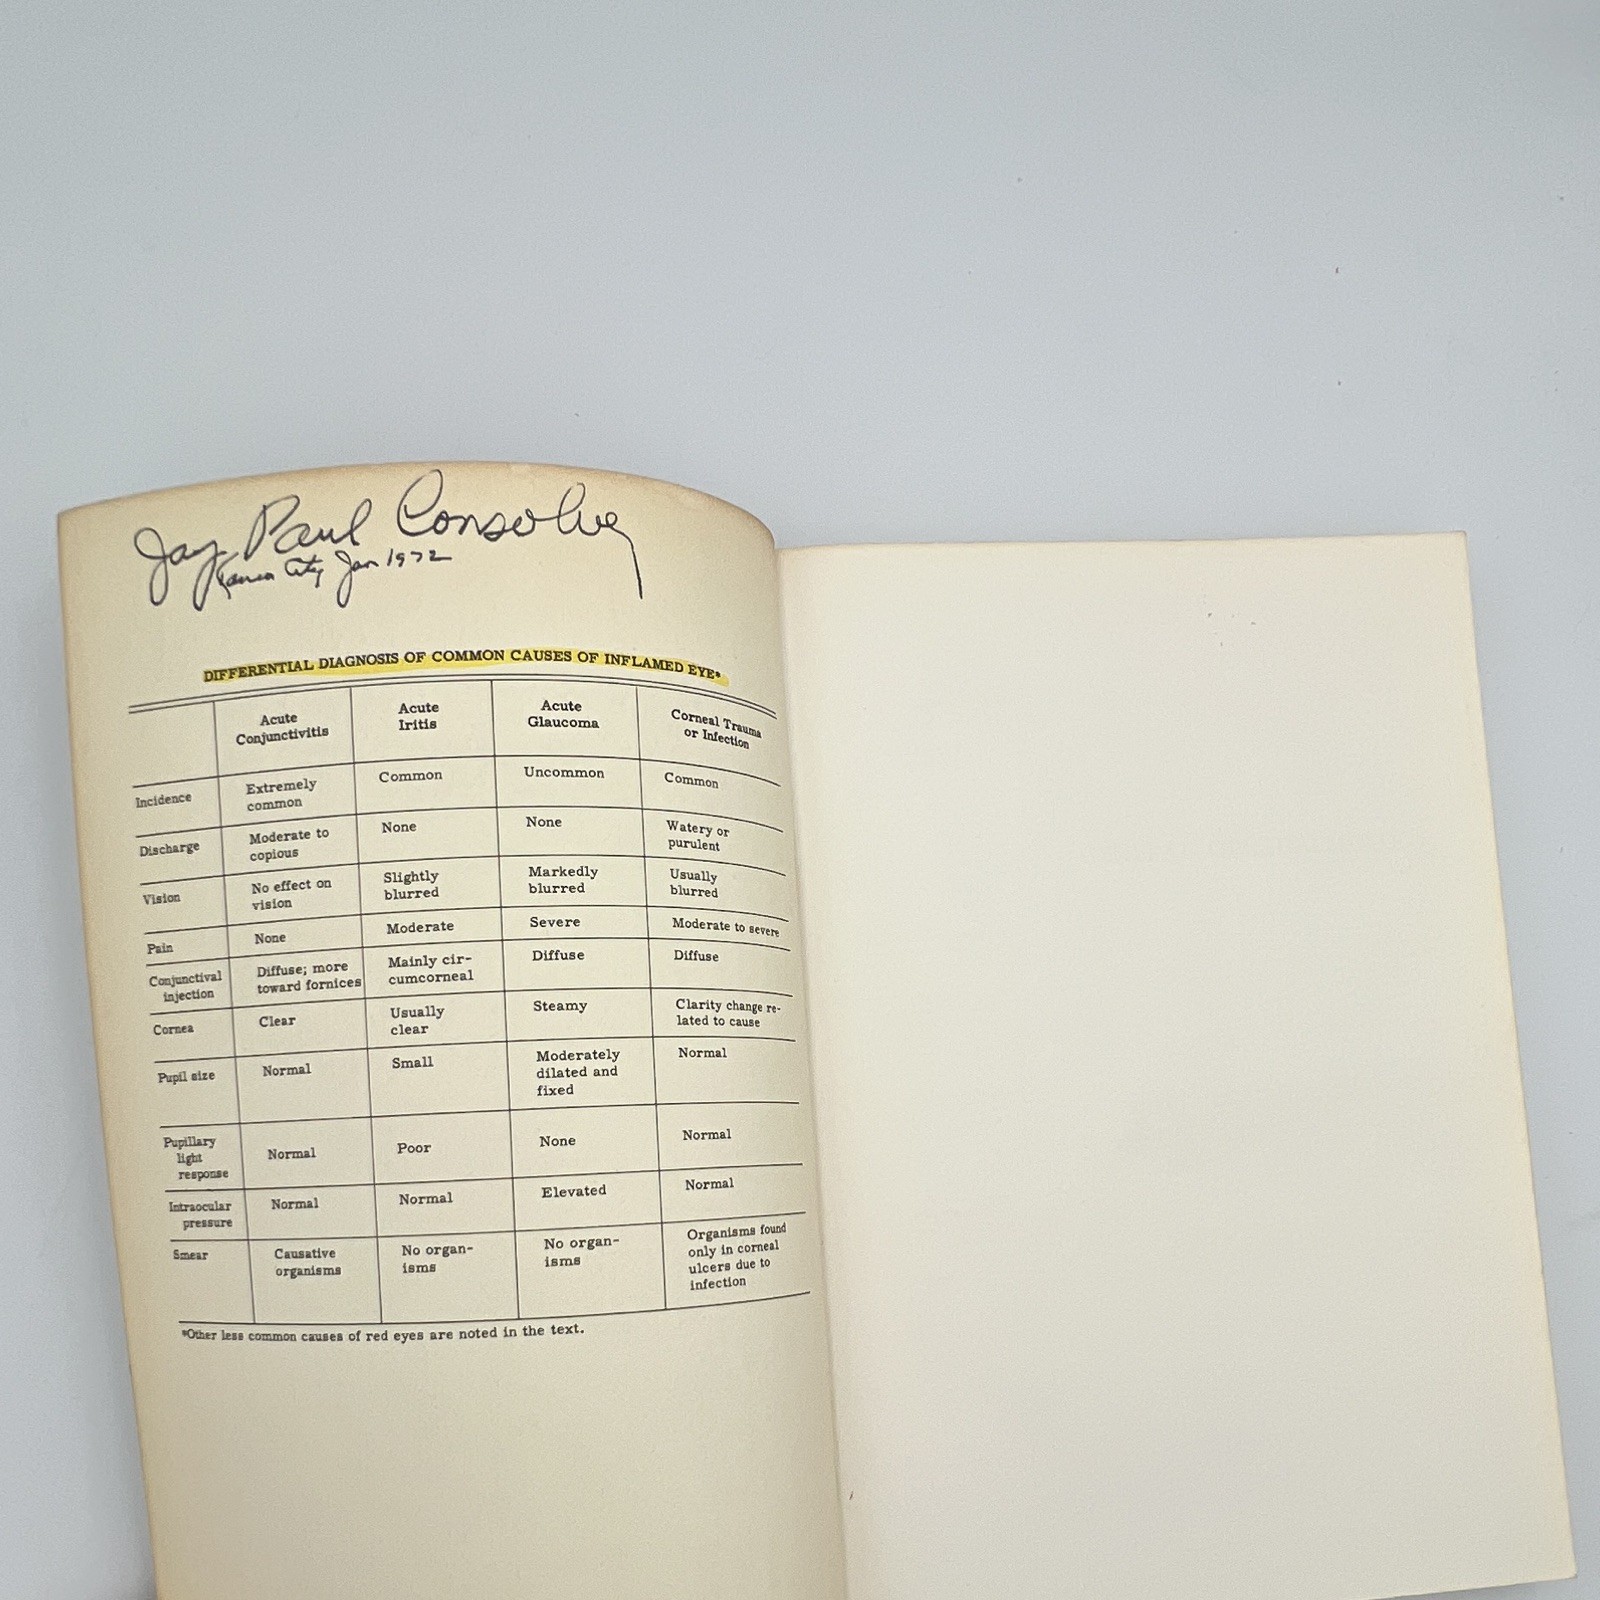 Jay Paul Consolver
Kansas City Jan 1972
DIFFERENTIAL DIAGNOSIS OF COMMON CAUSES OF INFLAMED EYE*
Acute Conjunctivitis	Acute Iritis	Acute Glaucoma	Corneal Trauma or Infection
Incidence	Extremely common	Common	Uncommon	Common
Discharge	Moderate to copious	None	None	Watery or purulent
Vision	No effect on vision	Slightly blurred	Markedly blurred	Usually blurred
Pain	None	Moderate	Severe	Moderate to severe
Conjunctival injection	Diffuse; more toward fornices	Mainly cir-cumcorneal	Diffuse	Diffuse
Cornea	Clear	Usually clear	Steamy	Clarity change re-lated to cause
Pupil size	Normal	Small	Moderately dilated and fixed	Normal
Pupillary light response	Normal	Poor	None	Normal
Intraocular pressure	Normal	Normal	Elevated	Normal
Smear	Causative organisms	No organ-isms	No organ-isms	Organisms found only in corneal ulcers due to infection
*Other less common causes of red eyes are noted in the text.